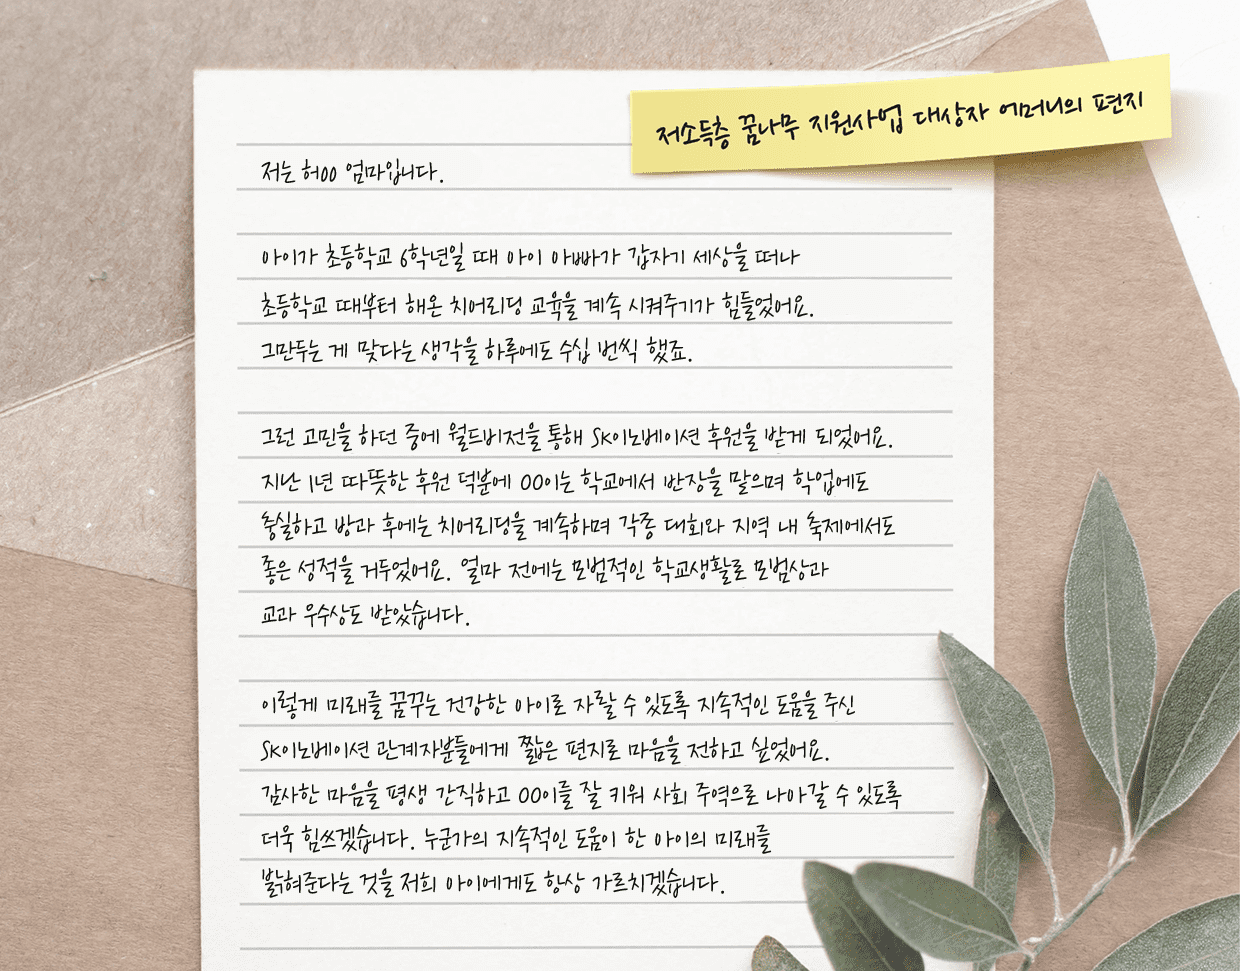 저소득층 꿈나무 지원사업 대상자 어머니의 편지
저는 허00 엄마입니다.
아이가 초등학교 6학년일 때 아이 아빠가 갑자기 세상을 떠나
초등학교 때부터 해온 치어리딩 교육을 계속 시켜주기가 힘들었어요.
그만두는 게 맞다는 생각을 하루에도 수십 번씩 했죠.
그런 고민을 하던 중에 월드비전을 통해 SK이노베이션 후원을 받게 되었어요.
지난 1년 따뜻한 후원 덕분에 00이는 학교에서 반장을 맡으며 학업에도
충실하고 방과 후에는 치어리딩을 계속하며 각종 대회와 지역 내 축제에서도
좋은 성적을 거두었어요. 얼마 전에는 모범적인 학교생활로 모범상과
교과 우수상도 받았습니다.
이렇게 미래를 꿈꾸는 건강한 아이로 자랄 수 있도록 지속적인 도움을 주신
SK이노베이션 관계자분들에게 짧은 편지로 마음을 전하고 싶었어요.
감사한 마음을 평생 간직하고 00이를 잘 키워 사회 주역으로 나아갈 수 있도록
더욱 힘쓰겠습니다. 누군가의 지속적인 도움이 한 아이의 미래를
밝혀준다는 것을 저희 아이에게도 항상 가르치겠습니다.